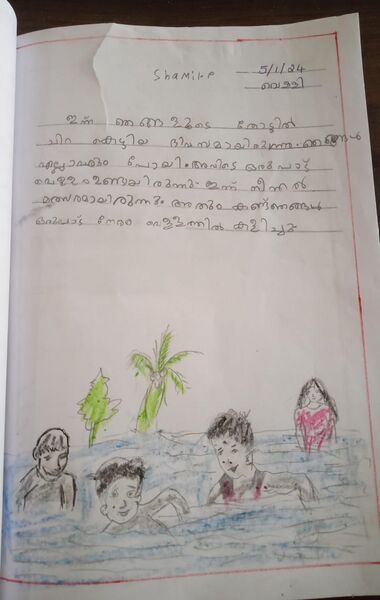 Shamil.P
5/1/24
വെള്ളി
ഇന്ന് ഞങ്ങളുടെ തോട്ടിൽ
ചിറ കെട്ടിയ ദിവസമായിരുന്നു. ഞങ്ങൾ
എല്ലാവരും പോയി. അവിടെ ഒരുപാട്
വെള്ളമുണ്ടായിരുന്നു. ഇന്ന് നീന്തൽ
മത്സരമായിരുന്നു. അതും കണ്ട് ഞങ്ങൾ
ഒരുപാട് നേരം വെള്ളത്തിൽ കളിച്ചു.